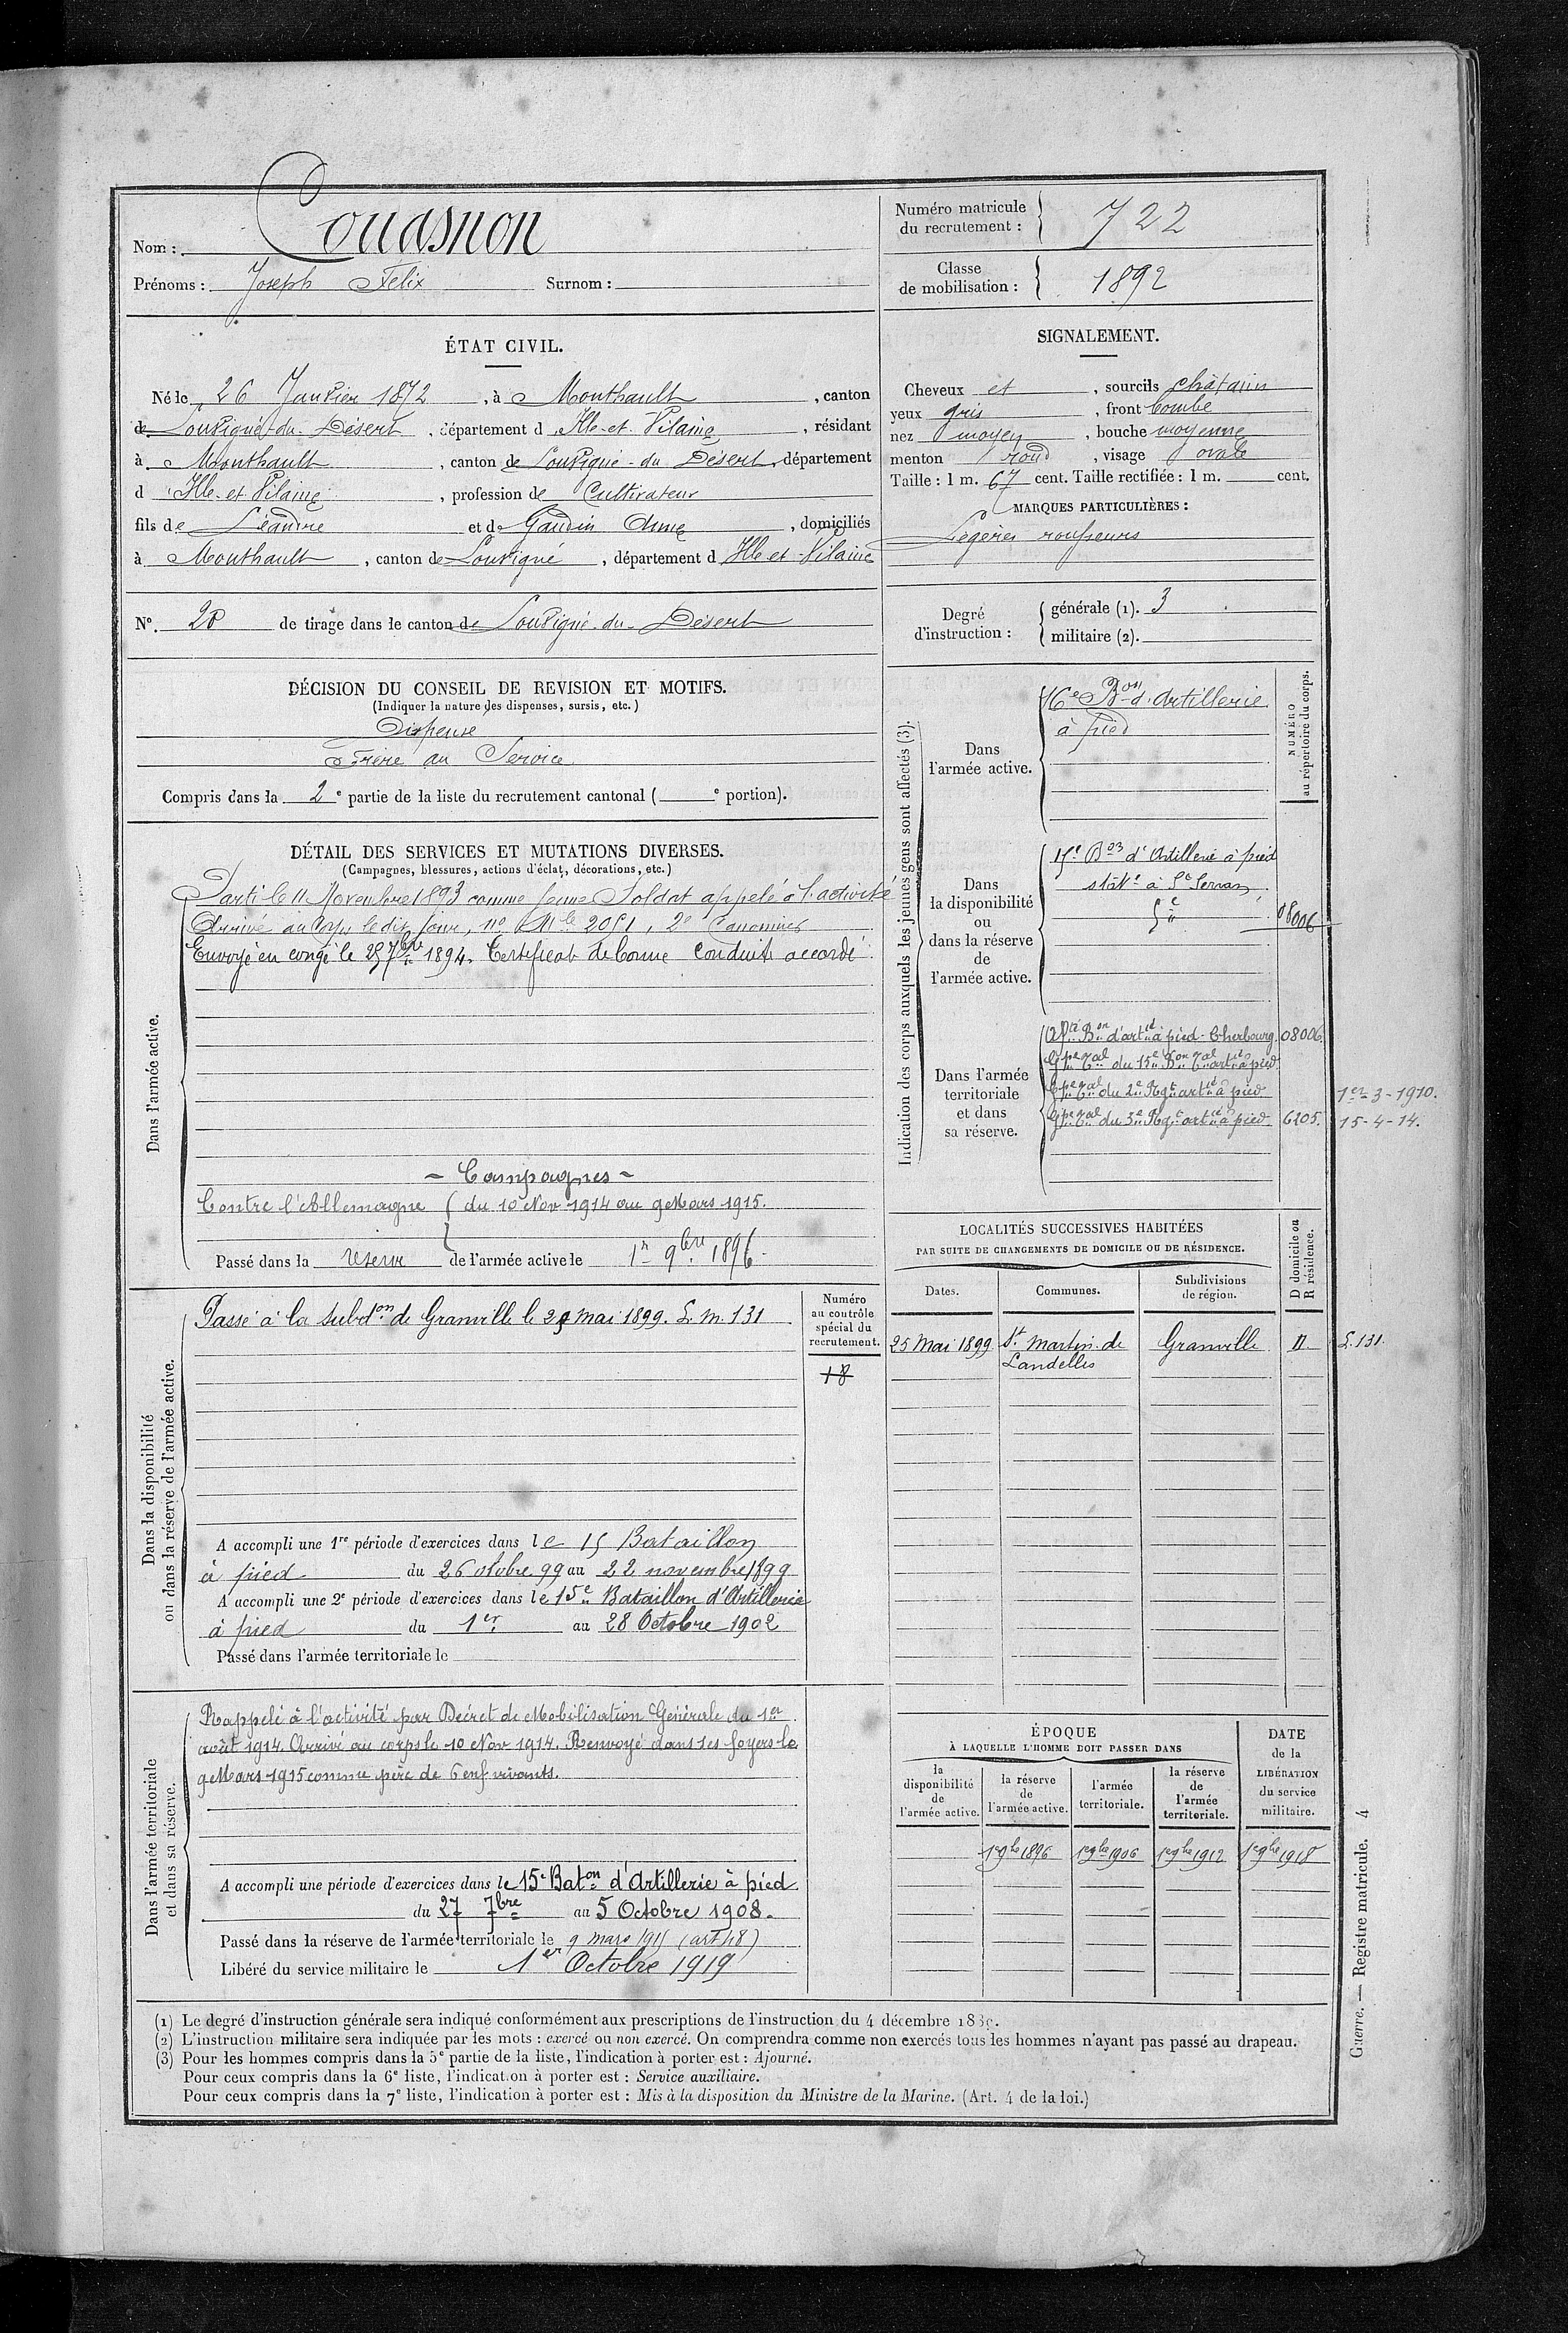 Nom : Couasnon
Prénoms : Joseph Félix Surnom :
Numéro matricule du recrutement : 722
Classe de mobilisation : 1892
ÉTAT CIVIL.
Né le 26 Janvier 1872, à Monthault, canton
de Louvigné-du-Désert, département d Ille-et-Vilaine, résidant
à Monthault, canton de Louvigné-du-Désert, département
d Ille-et-Vilaine, profession de Cultivateur
fils de Léandre et de Gaudin Anne, domiciliés
à Monthault, canton de Louvigné, département d Ille-et-Vilaine
N°. 20 de tirage dans le canton de Louvigné-du-Désert
SIGNALEMENT.
Cheveux et, sourcils châtain
yeux gris, front bombé
nez moyen, bouche moyenne
menton rond, visage ovale
Taille : 1 m. 67 cent. Taille rectifiée : 1 m. cent.
MARQUES PARTICULIÈRES :
Légères rousseurs
Degré d'instruction :
générale (1). 3
militaire (2).
DÉCISION DU CONSEIL DE REVISION ET MOTIFS.
(Indiquer la nature des dispenses, sursis, etc.)
Dispensé
Frère au Service
Compris dans la 2e partie de la liste du recrutement cantonal ( e portion).
DÉTAIL DES SERVICES ET MUTATIONS DIVERSES.
(Campagnes, blessures, actions d'éclat, décorations, etc.)
Dans l'armée active.
Parti le 11 Novembre 1893 comme jeune Soldat appelé à l'activité
Arrivé au Corps le dit jour, no Mle 2051, 2e Canonnier
Envoyé en congé le 25 7bre 1894. Certificat de bonne Conduite accordé.
- Campagnes -
Contre l'Allemagne { du 10 Nov 1914 au 9 Mars 1915.
Passé dans la réserve de l'armée active le 1er 9bre 1896.
Indication des corps auxquels les jeunes gens sont affectés (3).
NUMÉRO au répertoire du corps.
Dans l'armée active.
16e Bon d'Artillerie
à pied
Dans la disponibilité ou dans la réserve de l'armée active.
15e Bon d'Artillerie à pied
statné à St Servan
08006
Dans l'armée territoriale et dans sa réserve.
Bon d'artie à pied - Cherbourg 08006
Gpe tal du 15e Bon tal artie à pied
Gpe tal du 2e Rgt artie à pied 1er-3-1910.
Gpe tal du 3e Rgt artie à pied 6205. 15-4-14.
LOCALITÉS SUCCESSIVES HABITÉES
PAR SUITE DE CHANGEMENTS DE DOMICILE OU DE RÉSIDENCE.
Dates. Communes. Subdivisions de région. D domicile ou R résidence.
25 Mai 1899 St Martin de Landelles Granville D. L. 131.
Dans la disponibilité ou dans la réserve de l'armée active.
Passé à la subdon de Granville le 25 mai 1899. L. m. 131
Numéro au contrôle spécial du recrutement.
18
A accompli une 1re période d'exercices dans le 15 Bataillon
à pied du 26 octobre 99 au 22 novembre 1899
A accompli une 2e période d'exercices dans le 15e Bataillon d'Artillerie
à pied du 1er au 28 Octobre 1902
Passé dans l'armée territoriale le
Dans l'armée territoriale et dans sa réserve.
Rappelé à l'activité par Décret de Mobilisation Générale du 1er
août 1914. Arrivé au corps le 10 Nov 1914. Renvoyé dans ses foyers le
9 Mars 1915 comme père de 6 enf vivants.
A accompli une période d'exercices dans le 15e Baton d'Artillerie à pied
du 27 7bre au 5 Octobre 1908.
Passé dans la réserve de l'armée territoriale le 9 mars 1915 (art 48)
Libéré du service militaire le 1er Octobre 1919
ÉPOQUE
À LAQUELLE L'HOMME DOIT PASSER DANS
la disponibilité de l'armée active. la réserve de l'armée active. l'armée territoriale. la réserve de l'armée territoriale.
DATE de la LIBÉRATION du service militaire.
1er 9bre 1896 1er 9bre 1906 1er 9bre 1912 1er 9bre 1918
(1) Le degré d'instruction générale sera indiqué conformément aux prescriptions de l'instruction du 4 décembre 1889.
(2) L'instruction militaire sera indiquée par les mots : exercé ou non exercé. On comprendra comme non exercés tous les hommes n'ayant pas passé au drapeau.
(3) Pour les hommes compris dans la 5e partie de la liste, l'indication à porter est : Ajourné.
Pour ceux compris dans la 6e liste, l'indication à porter est : Service auxiliaire.
Pour ceux compris dans la 7e liste, l'indication à porter est : Mis à la disposition du Ministre de la Marine. (Art. 4 de la loi.)
Guerre. — Registre matricule. 4